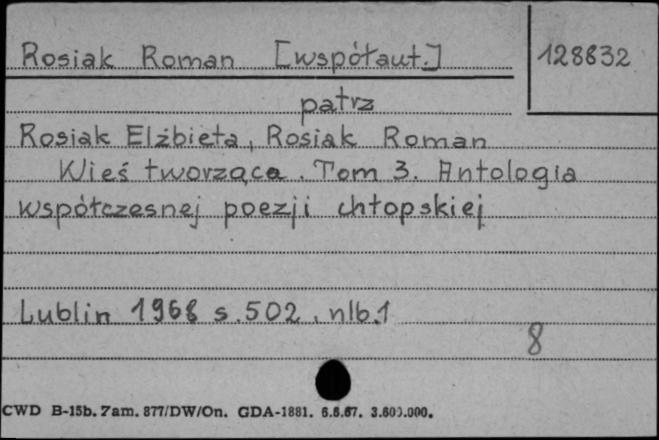 Rosiak Roman [współaut.]
128832
patrz
Rosiak Elżbieta, Rosiak Roman
Wieś tworząca. Tom 3. Antologia
współczesnej poezji chłopskiej
Lublin 1968 s. 502, nlb. 1
8
CWD B-15b. Zam. 877/DW/On. GDA-1881. 6.6.67. 3.600.000.